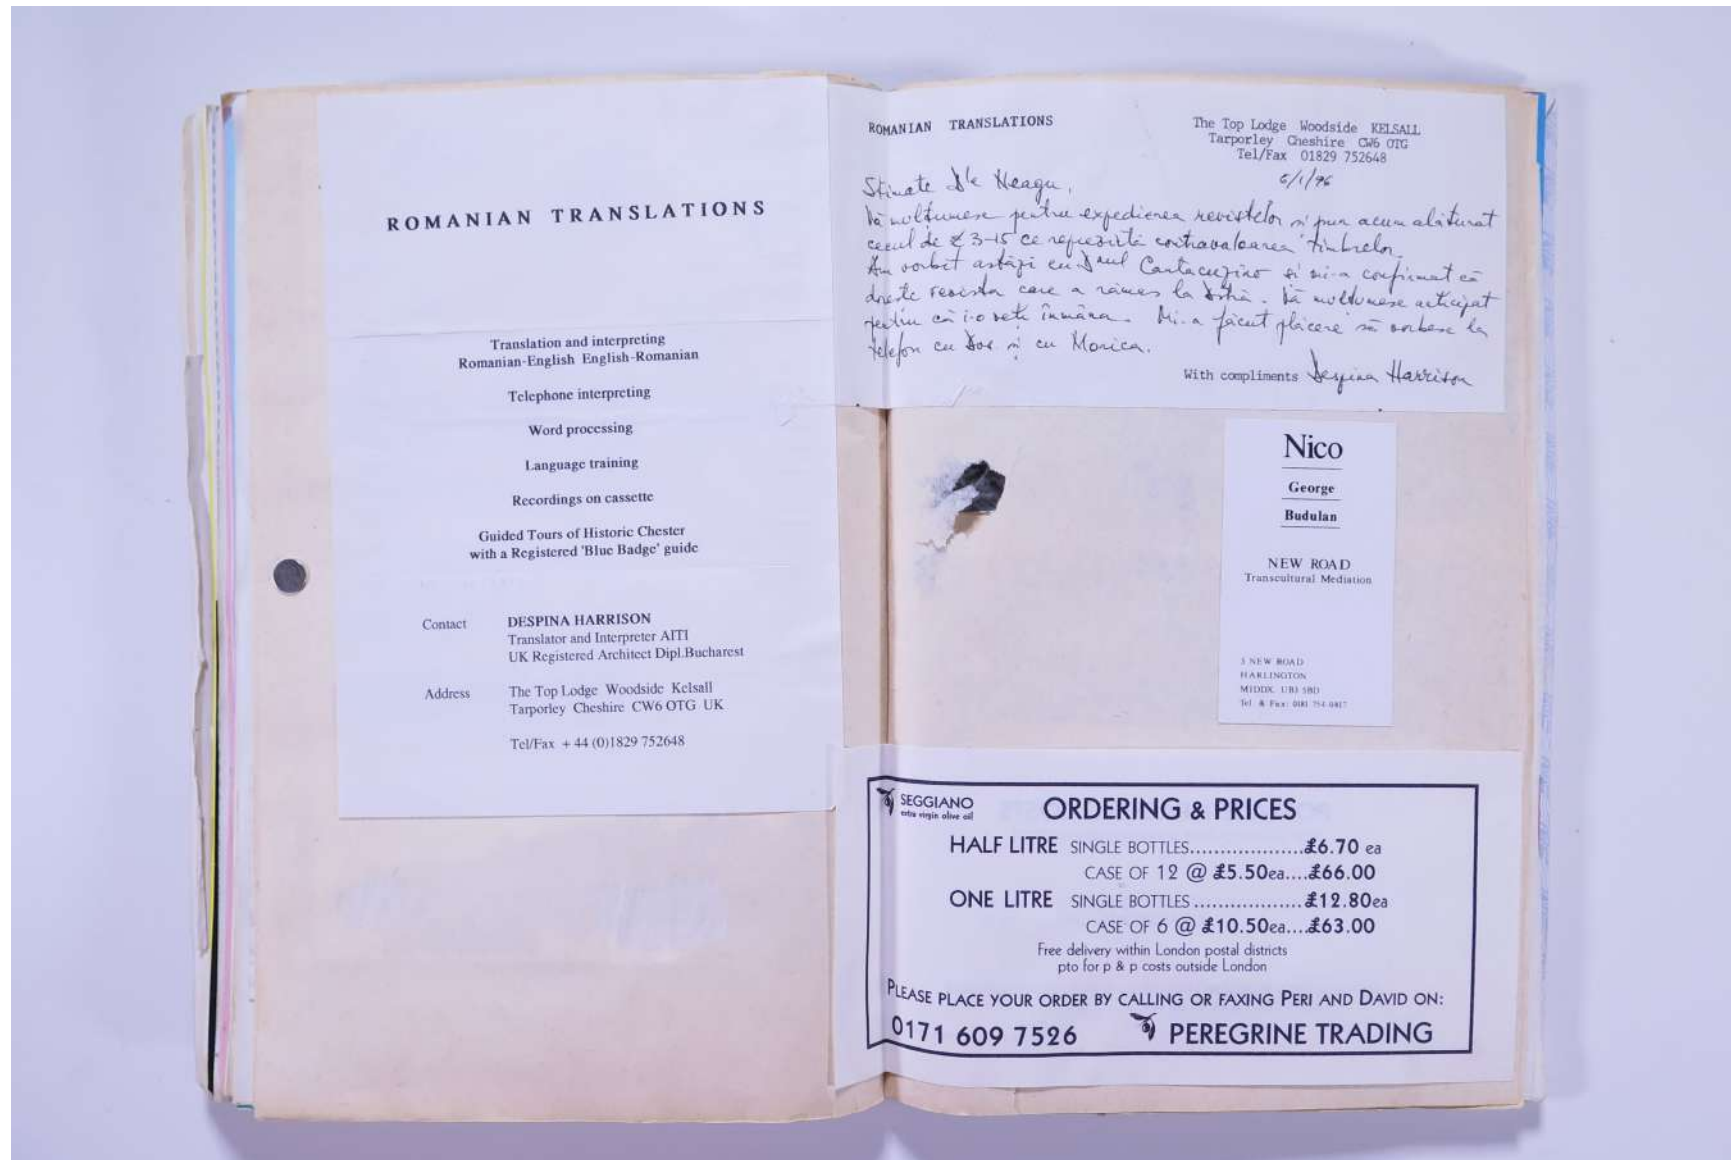 ROMANIAN TRANSLATIONS
Translation and interpreting
Romanian-English English-Romanian
Telephone interpreting
Word processing
Language training
Recordings on cassette
Guided Tours of Historic Chester
with a Registered 'Blue Badge' guide
Contact DESPINA HARRISON
Translator and Interpreter AITI
UK Registered Architect Dipl.Bucharest
Address The Top Lodge Woodside Kelsall
Tarporley Cheshire CW6 OTG UK
Tel/Fax + 44 (0)1829 752648
ROMANIAN TRANSLATIONS
The Top Lodge Woodside KELSALL
Tarporley Cheshire CW6 OTG
Tel/Fax 01829 752648
6/1/96
Stimate Dle Neagu,
Vă mulțumesc pentru expedierea revistelor și pun acum alăturat
cecul de £3-15 ce reprezintă contravaloarea timbrelor.
Am vorbit astăzi cu Dnul Cantacuzino și mi-a confirmat că
dorește revista care a rămas la. Vă mulțumesc anticipat
pentru că i-o veți înmâna. Mi-a făcut plăcere să vorbesc la
telefon cu și cu Monica.
With compliments Despina Harrison
Nico
George
Budulan
NEW ROAD
Transcultural Mediation
3 NEW ROAD
HARLINGTON
MIDDX UB3 5BD
Tel & Fax: 0181 754-0817
SEGGIANO
extra virgin olive oil
ORDERING & PRICES
HALF LITRE SINGLE BOTTLES...................£6.70 ea
CASE OF 12 @ £5.50ea....£66.00
ONE LITRE SINGLE BOTTLES..................£12.80ea
CASE OF 6 @ £10.50ea....£63.00
Free delivery within London postal districts
pto for p & p costs outside London
PLEASE PLACE YOUR ORDER BY CALLING OR FAXING PERI AND DAVID ON:
0171 609 7526 PEREGRINE TRADING